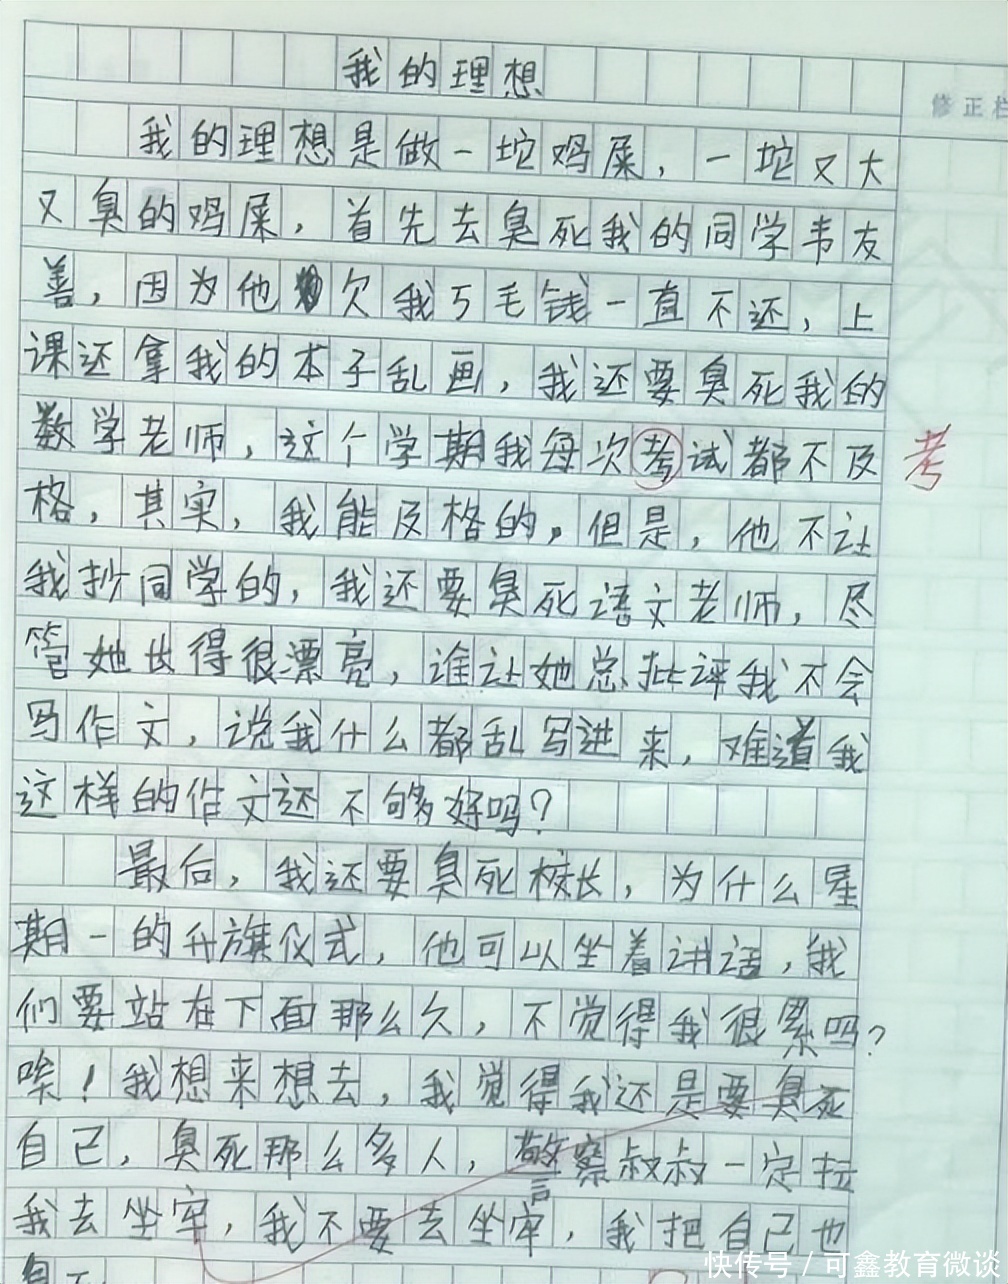 我的理想
修正栏
我的理想是做一坨鸡屎，一坨又大
又臭的鸡屎，首先去臭死我的同学韦友
善，因为他欠我5毛钱一直不还，上
课还拿我的本子乱画，我还要臭死我的
数学老师，这个学期我每次考试都不及
考
格，其实，我能及格的，但是，他不让
我抄同学的，我还要臭死语文老师，尽
管她长得很漂亮，谁让她总批评我不会
写作文，说我什么都乱写进来，难道我
这样的作文还不够好吗？
最后，我还要臭死校长，为什么星
期一的升旗仪式，他可以坐着讲话，我
们要站在下面那么久，不觉得我很累吗？
唉！我想来想去，我觉得我还是要臭死
自己，臭死那么多人，警察叔叔一定拉
我去坐牢，我不要去坐牢，我把自己也
快传号/可鑫教育微谈